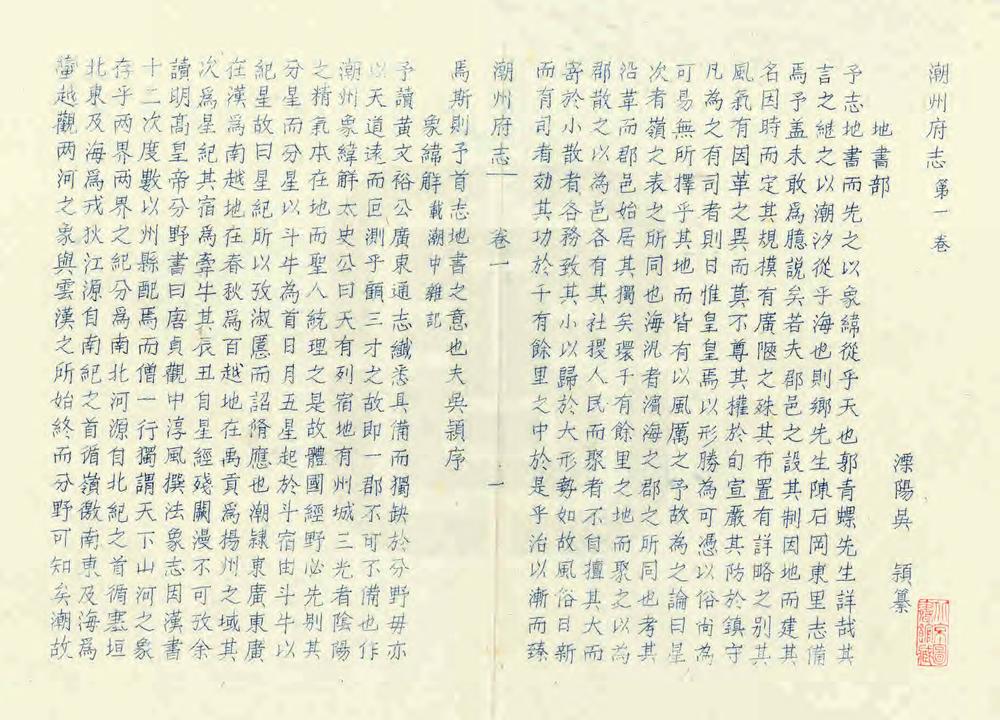 潮州府志 第一卷
溧陽吳 頴纂
地書部
予志地書而先之以象緯從乎天也郭青螺先生詳哉其
言之継之以潮汐從乎海也則鄉先生陳石岡東里志備
焉予盖未敢爲臆説矣若夫郡邑之設其制因地而建其
名因時而定其規模有廣陿之殊其布置有詳略之別其
風氣有因革之異而莫不尊其權於旬宣嚴其防於鎮守
凡為之有司者則日惟皇皇焉以形勝為可憑以俗尚為
可易無所擇乎其地而皆有以風厲之予故為之論曰星
次者嶺之表之所同也海汛者濱海之郡之所同也考其
沿革而郡邑始居其獨矣環千有餘里之地而聚之以為
郡散之以為邑各有其社稷人民而聚者不自擅其大而
寄於小散者各務致其小以歸於大形勢如故風俗日新
而有司者効其功於千有餘里之中於是乎治以漸而臻
潮州府志 卷一 一
焉斯則予首志地書之意也夫吳頴序
象緯解 載潮中雜記
予讀黄文裕公廣東通志纖悉具備而獨缺於分野毋亦
以天道逺而叵測乎顧三才之故即一郡不可不備也作
潮州象緯解太史公曰天有列宿地有州城三光者陰陽
之精氣本在地而聖人統理之是故體國經野必先剔其
分星而分星以斗牛為首日月五星起於斗宿由斗牛以
紀星故曰星紀所以攷淑慝而詔脩應也潮隷東廣東廣
在漢爲南越地在春秋爲百越地在禹貢爲揚州之域其
次爲星紀其宿爲牽牛其辰丑自星經殘闕漫不可攷余
讀明髙皇帝分野書曰唐貞觀中淳風撰法象志因漢書
十二次度數以州縣配焉而僧一行獨謂天下山河之象
存乎两界两界之紀分爲南北河源自北紀之首循塞垣
北東及海爲戎狄江源自南紀之首循嶺徼南東及海爲
蠻越觀两河之象與雲漢之所始終而分野可知矣潮故